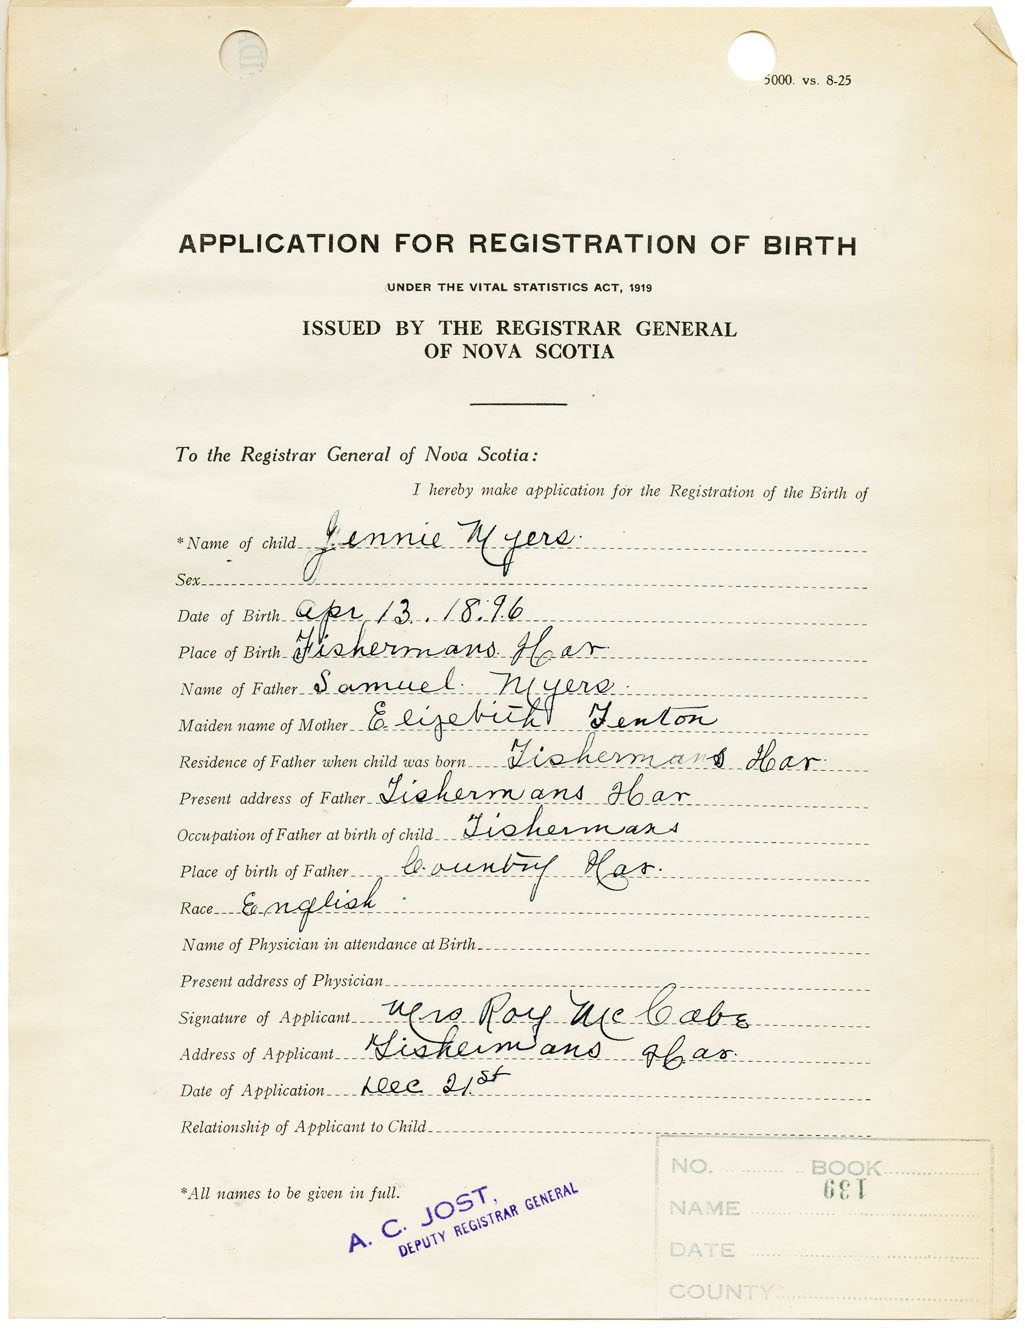 5000. vs. 8-25
APPLICATION FOR REGISTRATION OF BIRTH
UNDER THE VITAL STATISTICS ACT, 1919
ISSUED BY THE REGISTRAR GENERAL
OF NOVA SCOTIA
To the Registrar General of Nova Scotia:
I hereby make application for the Registration of the Birth of
*Name of child Jennie Myers.
Sex
Date of Birth Apr 13. 1896
Place of Birth Fishermans Har
Name of Father Samuel. Myers.
Maiden name of Mother Elizebith Fenton
Residence of Father when child was born Fishermans Har.
Present address of Father Fishermans Har
Occupation of Father at birth of child Fishermans
Place of birth of Father Country Har.
Race English
Name of Physician in attendance at Birth
Present address of Physician
Signature of Applicant Mrs Roy McCabe
Address of Applicant Fishermans Har.
Date of Application Dec 21st
Relationship of Applicant to Child
*All names to be given in full.
A. C. JOST,
DEPUTY REGISTRAR GENERAL
NO. BOOK
139
NAME
DATE
COUNTY